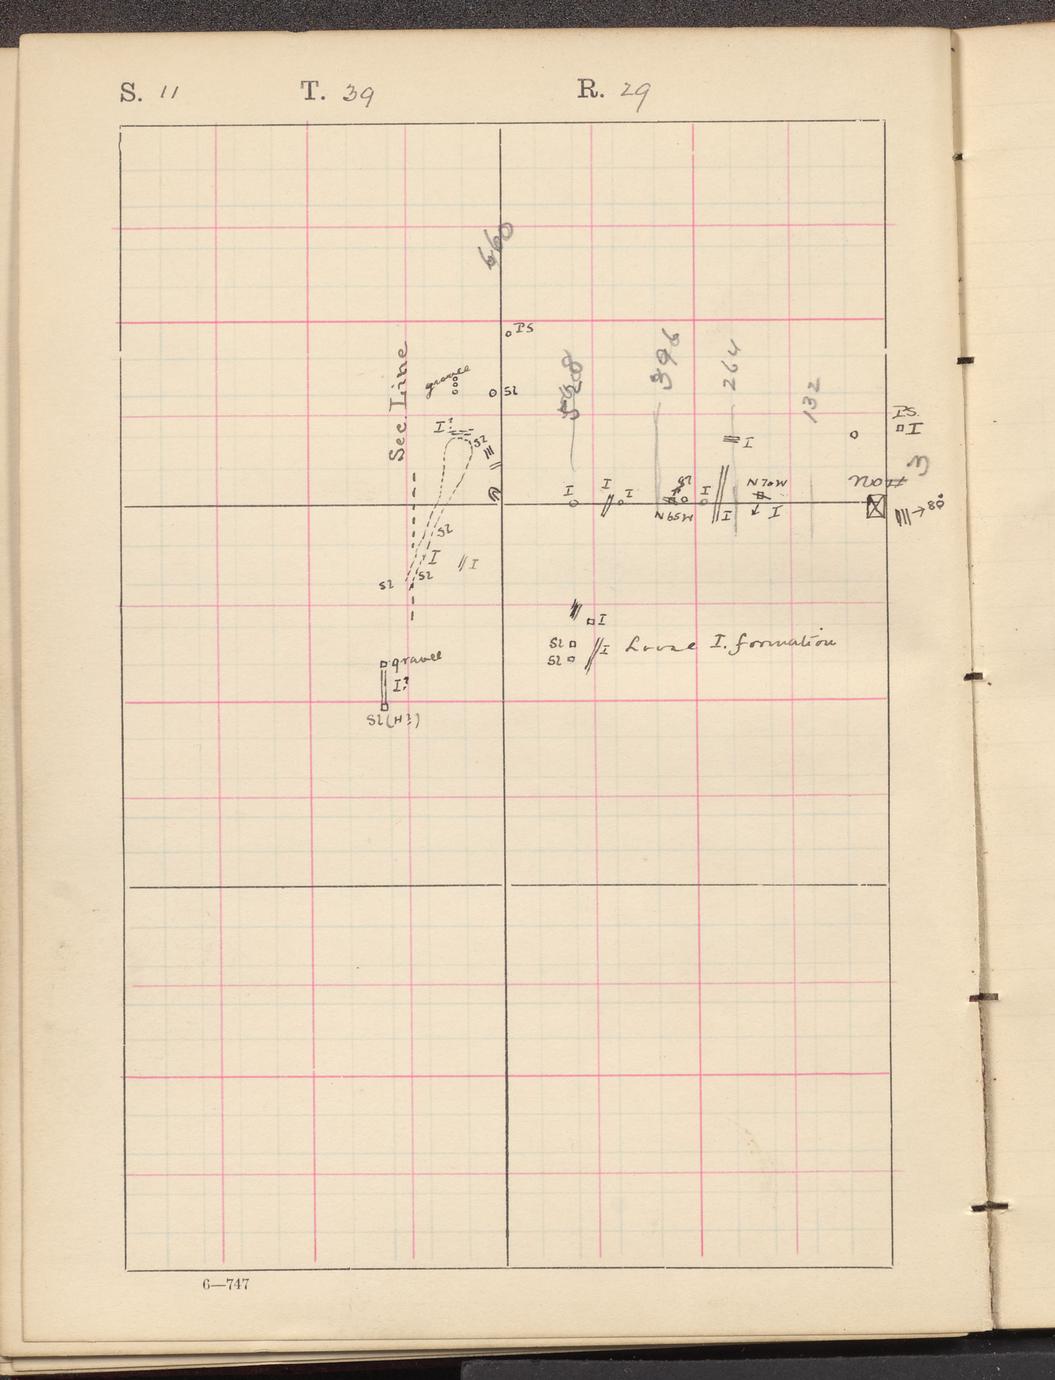 S. 11 T. 39 R. 29
660
PS
Sec. Line
gravel
Sl
528
396
264
132
PS.
I
I?
Sl
I
No # 3
I
I
I
Sl
I
N 70 W
N 65 W
I
I
80°
Sl
I
Sl
Sl
I
I
Sl
Sl
I Loose I. formation
gravel
I?
Sl (H?)
6—747